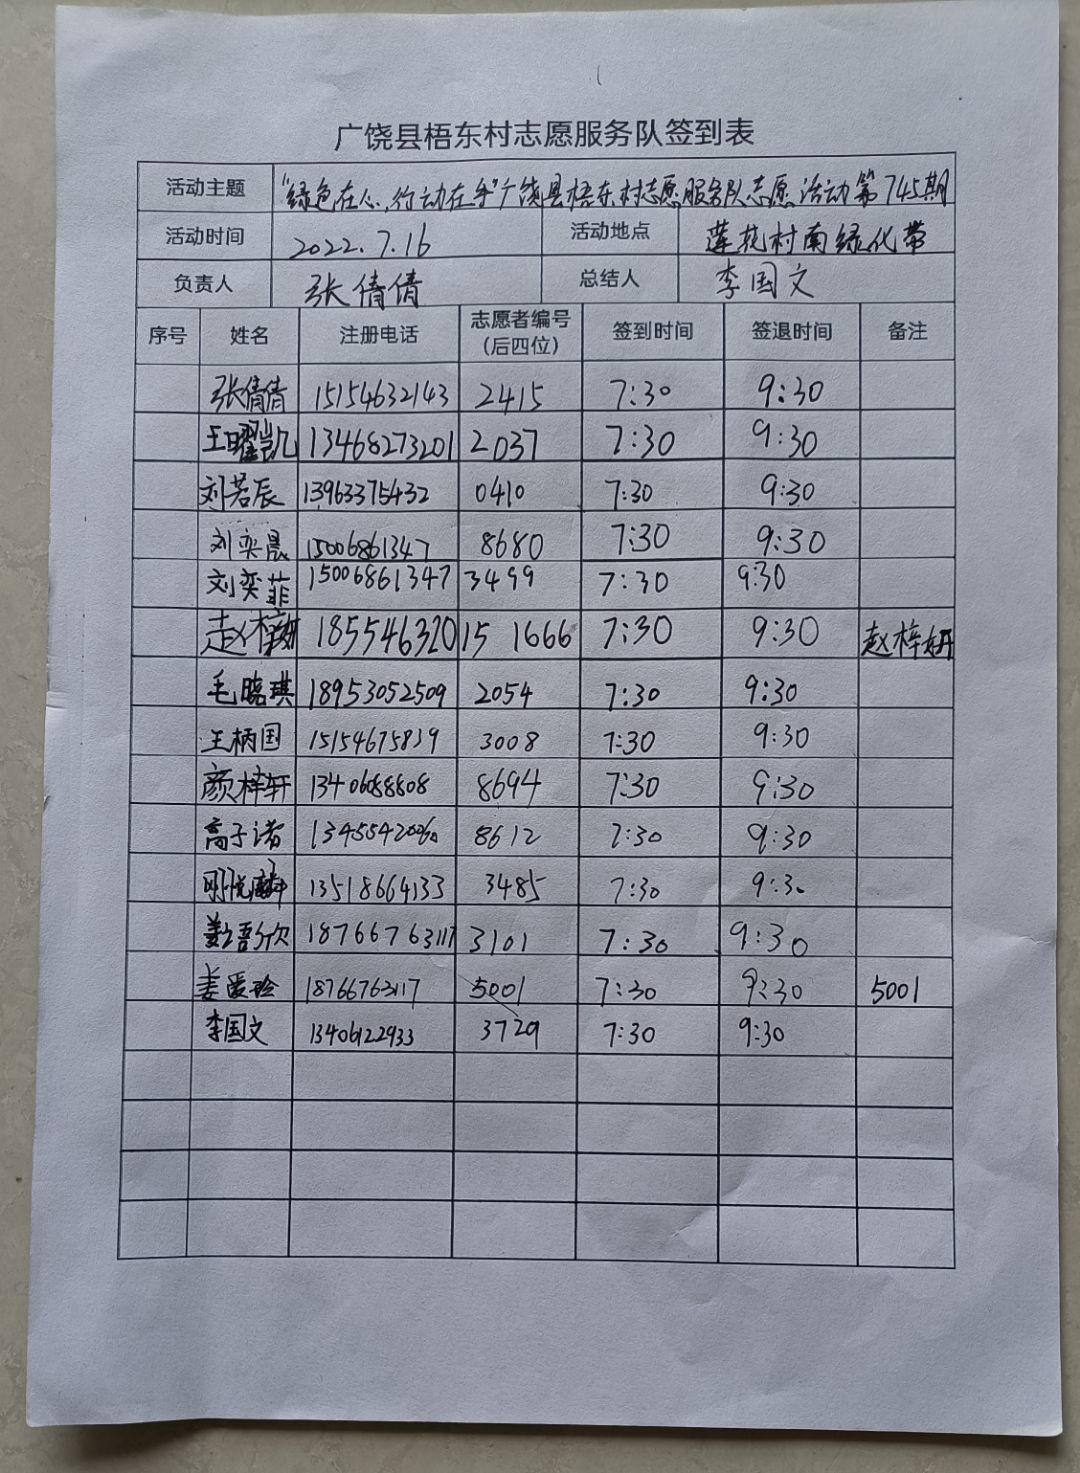 广饶县梧东村志愿服务队签到表
活动主题 "绿色在心,行动在手"广饶县梧东村志愿服务队志愿活动第745期
活动时间 2022.7.16 活动地点 莲花村南绿化带
负责人 张倩倩 总结人 李国文
序号 姓名 注册电话 志愿者编号 (后四位) 签到时间 签退时间 备注
张倩倩 15154632143 2415 7:30 9:30
王曜凯 13468273201 2037 7:30 9:30
刘若辰 13963375432 0410 7:30 9:30
刘奕晨 15006861347 8680 7:30 9:30
刘奕菲 15006861347 3499 7:30 9:30
赵梓妍 18554632015 1666 7:30 9:30 赵梓妍
毛晓琪 18953052509 2054 7:30 9:30
王柄国 15154675839 3008 7:30 9:30
颜梓轩 13406088808 8694 7:30 9:30
高子诺 8612 7:30 9:30
悦麟 13518664133 3485 7:30 9:30
18766763117 3101 7:30 9:30
姜爱玲 18766763117 5001 7:30 9:30 5001
李国文 13406122933 3729 7:30 9:30